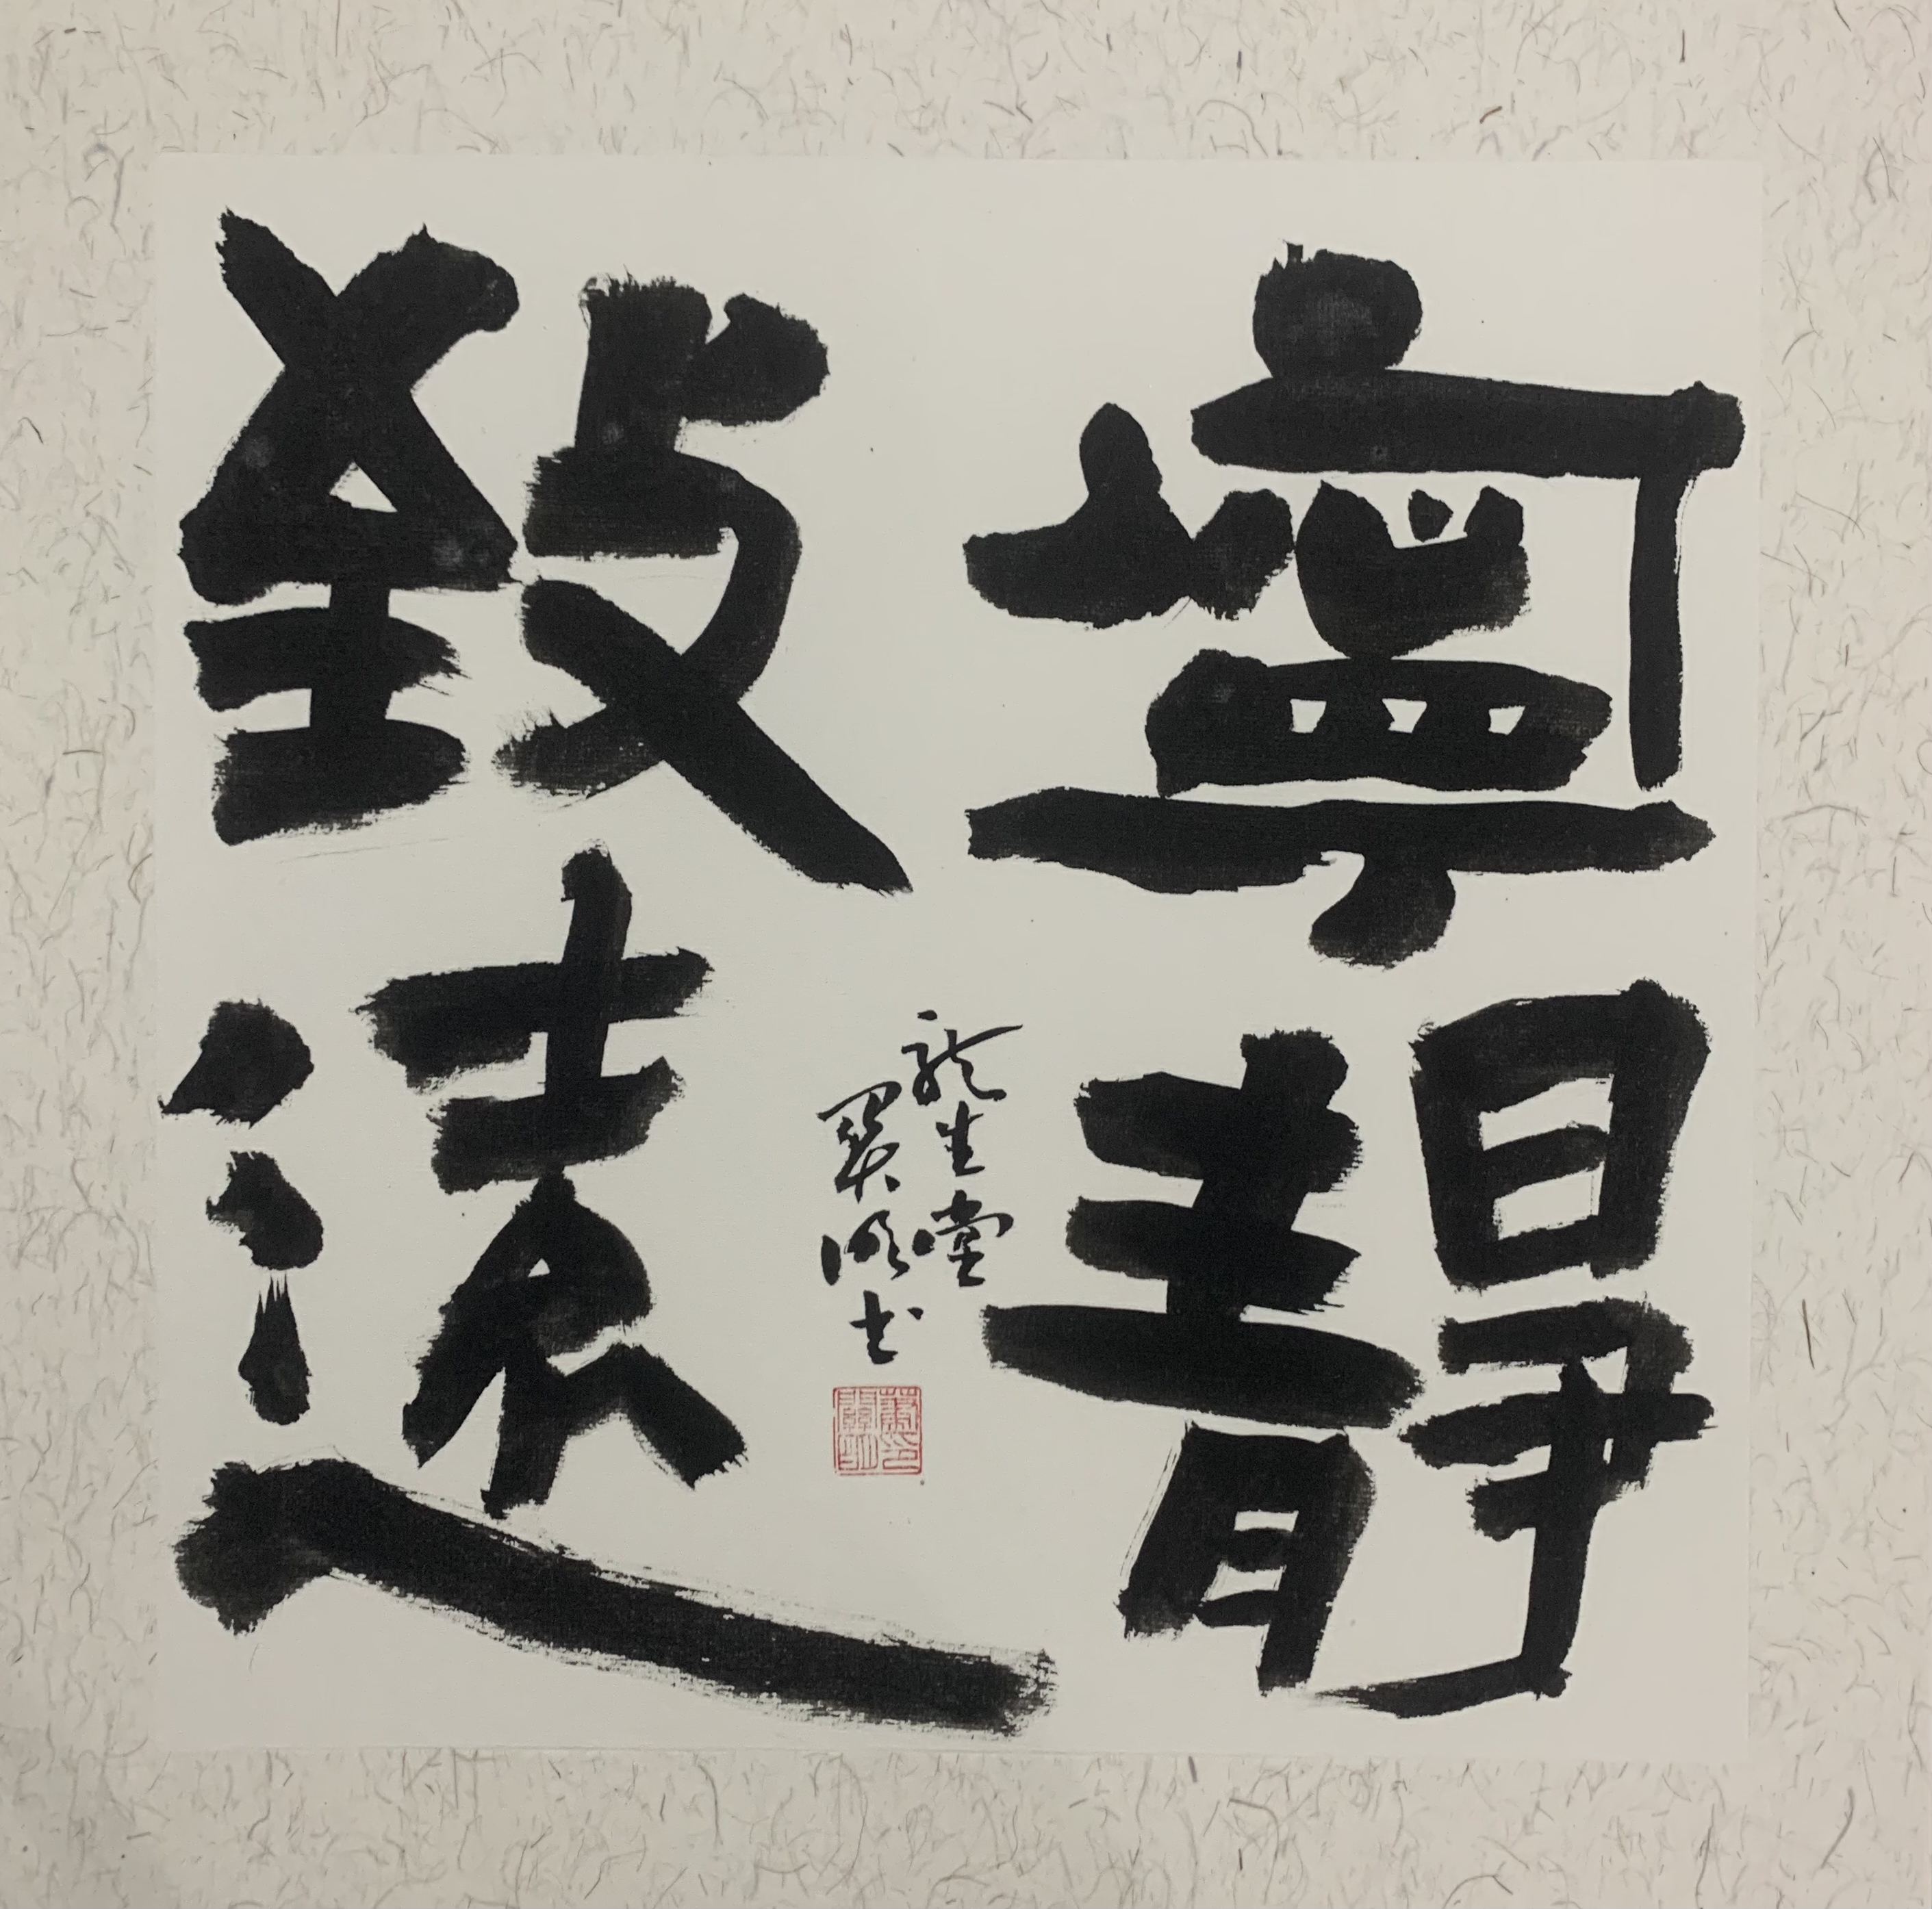 寧靜
致遠
龍生堂
明書